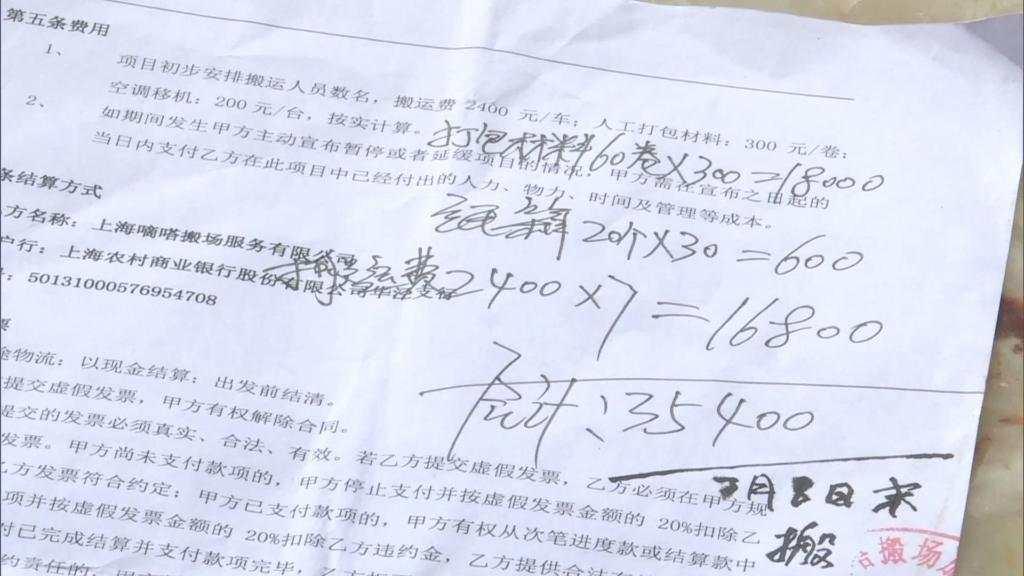 第五条费用
1、 项目初步安排搬运人员数名，搬运费 2400 元/车；人工打包材料：300 元/卷；
空调移机：200 元/台，按实计算。
打包材料60卷×300=18000
2、 如期间发生甲方主动宣布暂停或者延缓项目的情况，甲方需在宣布之日起的
当日内支付乙方在此项目中已经付出的人力、物力、时间及管理等成本。
20个×30=600
条结算方式
方名称：上海嘀嗒搬场服务有限公司
户行：上海农村商业银行股份有限公司华泾支行
搬运费2400×7=16800
：50131000576954708
票
途物流：以现金结算；出发前结清。
合计：35400
提交虚假发票，甲方有权解除合同。
提交的发票必须真实、合法、有效。若乙方提交虚假发票，乙方必须在甲方规
发票。甲方尚未支付款项的，甲方停止支付并按虚假发票金额的 20%扣除乙
乙方发票符合约定；甲方已支付款项的，甲方有权从次笔进度款或结算款中
项并按虚假发票金额的 20%扣除乙方违约金，乙方提供合法有
付已完成结算并支付款项完毕，乙方
约责任的，
月8日来
搬
搬场